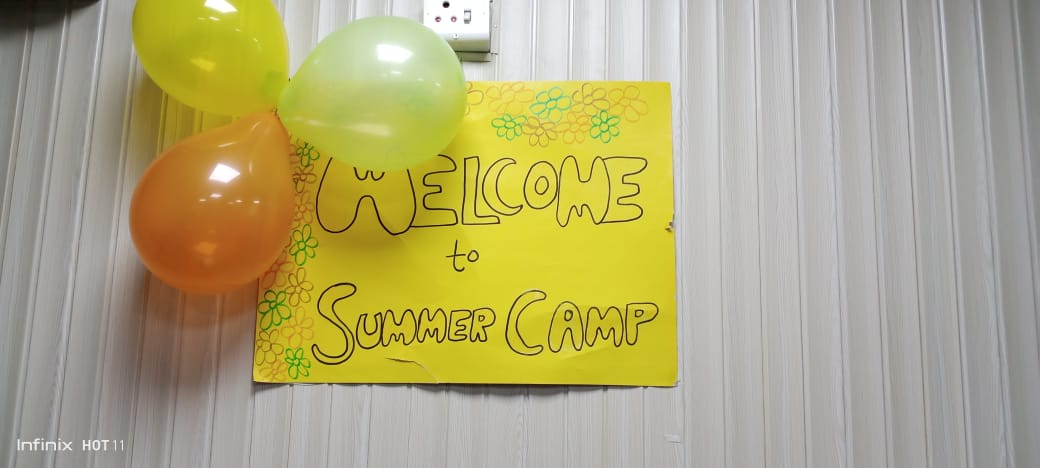 WELCOME
to
SUMMER CAMP
Infinix HOT 11